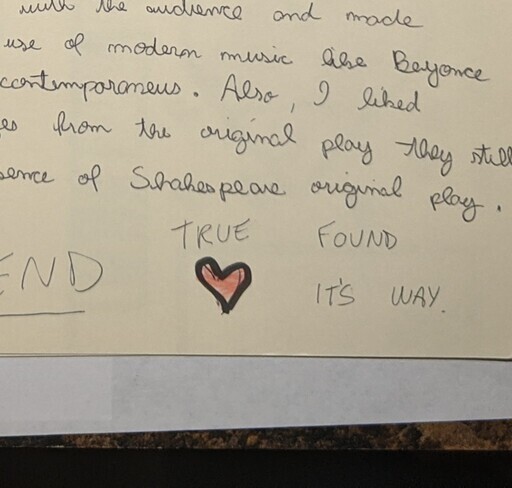 with the audience and made
use of modern music like Beyonce
contemporaneus. Also, I liked
es from the original play they still
sence of Shakespeare original play.
TRUE FOUND
END
IT'S WAY.